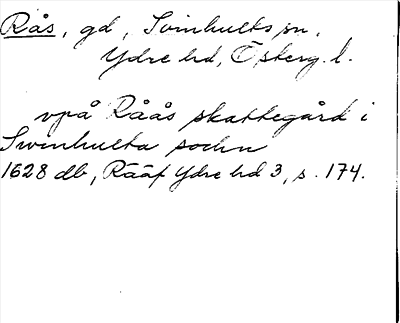 Rås, gd, Svinhults sn,
Ydre hd, Österg. l.
vpå Råås skattegård i
Swinhulta sochn
1628 db, RääF Ydre hd 3, s. 174.